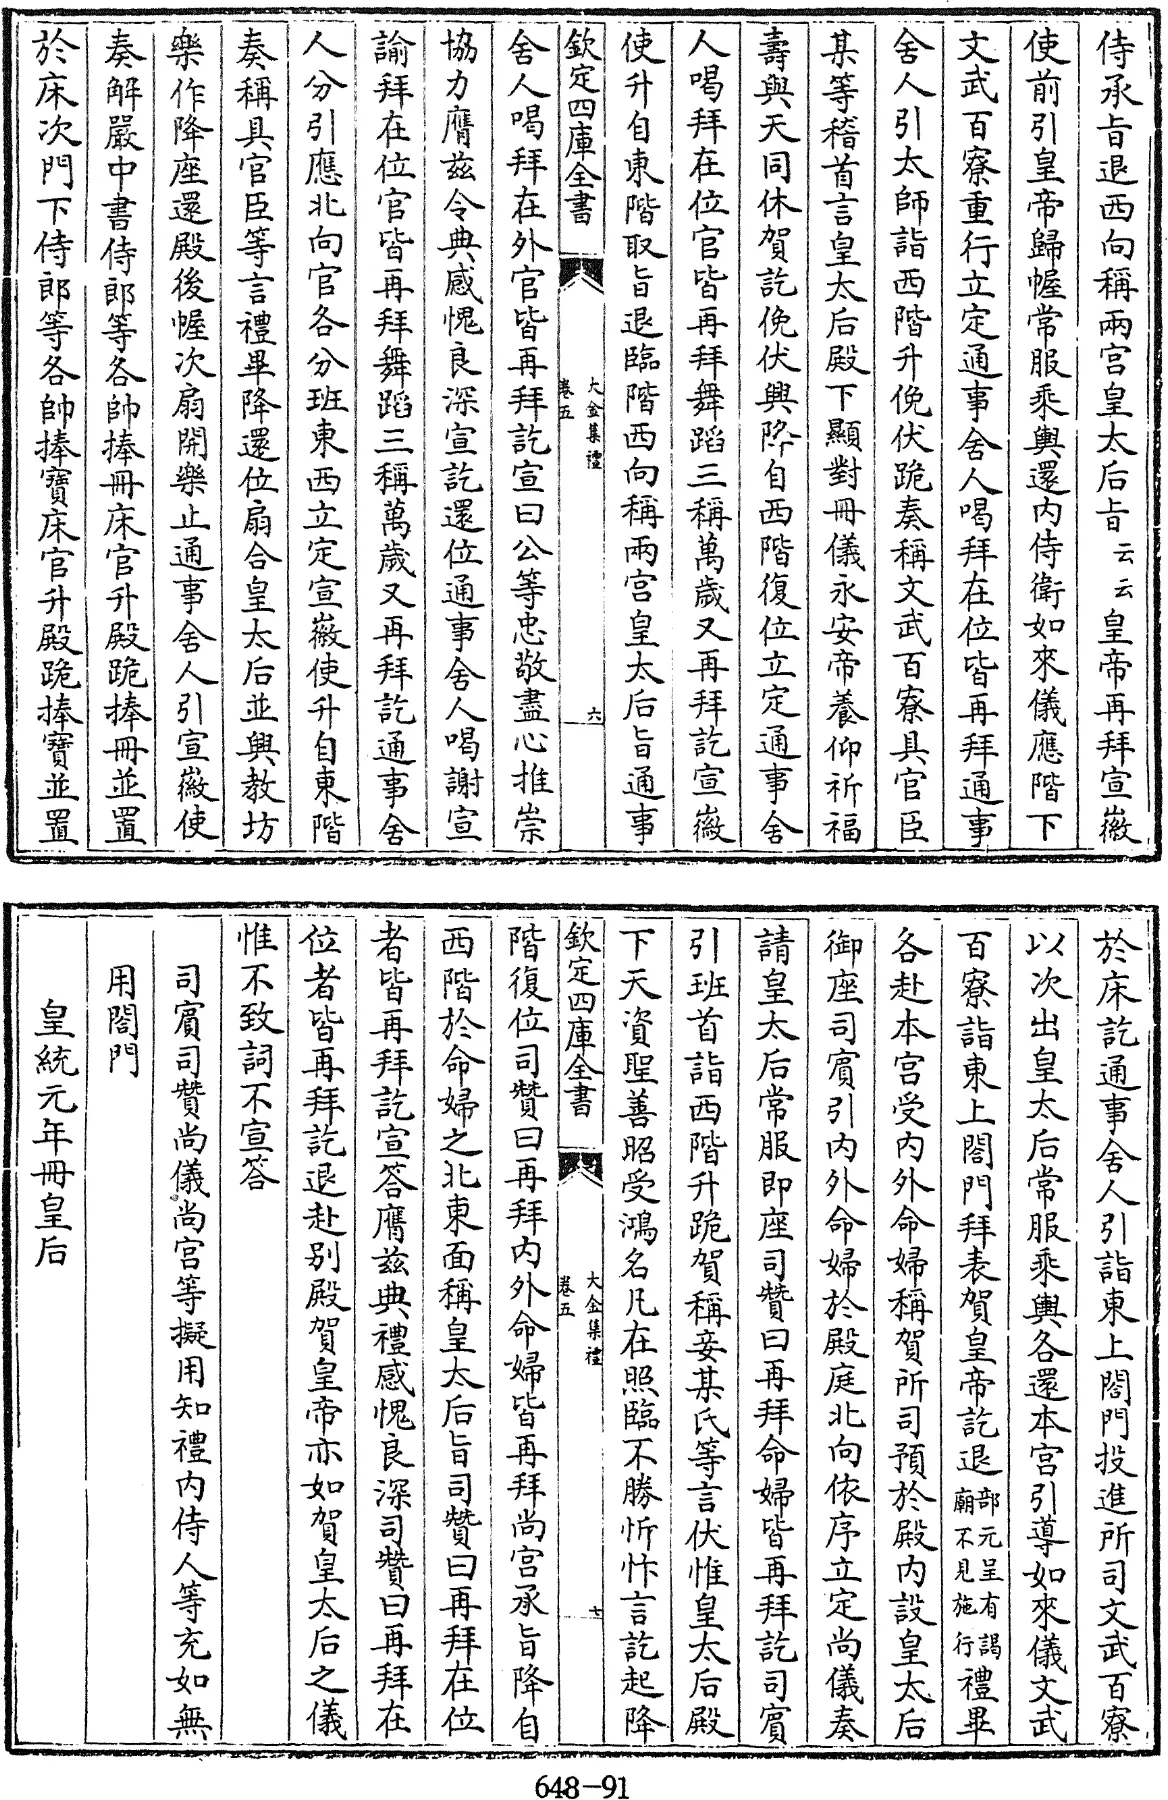 侍承旨退西向稱兩宫皇太后旨云云皇帝再拜宣徽
使前引皇帝歸幄常服乘輿還内侍衛如來儀應階下
文武百寮重行立定通事舍人喝拜在位皆再拜通事
舍人引太師詣西階升俛伏跪奏稱文武百寮具官臣
某等稽首言皇太后殿下顯對冊儀永安帝養仰祈福
壽與天同休賀訖俛伏興降自西階復位立定通事舍
人喝拜在位官皆再拜舞蹈三稱萬歲又再拜訖宣徽
使升自東階取旨退臨階西向稱兩宫皇太后旨通事
欽定四庫全書
大金集禮
卷五
六
舍人喝拜在外官皆再拜訖宣曰公等忠敬盡心推崇
協力膺兹令典感愧良深宣訖還位通事舍人喝謝宣
諭拜在位官皆再拜舞蹈三稱萬歲又再拜訖通事舍
人分引應北向官各分班東西立定宣徽使升自東階
奏稱具官臣等言禮畢降還位扇合皇太后並興教坊
樂作降座還殿後幄次扇開樂止通事舍人引宣徽使
奏解嚴中書侍郎等各帥捧冊床官升殿跪捧冊並置
於床次門下侍郎等各帥捧寶床官升殿跪捧寶並置
於床訖通事舍人引詣東上閤門投進所司文武百寮
以次出皇太后常服乘輿各還本宫引導如來儀文武
百寮詣東上閤門拜表賀皇帝訖退部元呈有謁廟不見施行禮畢
各赴本宫受内外命婦稱賀所司預於殿内設皇太后
御座司賓引内外命婦於殿庭北向依序立定尚儀奏
請皇太后常服即座司贊曰再拜命婦皆再拜訖司賓
引班首詣西階升跪賀稱妾某氏等言伏惟皇太后殿
下天資聖善昭受鴻名凡在照臨不勝忻忭言訖起降
欽定四庫全書
大金集禮
卷五
七
階復位司贊曰再拜内外命婦皆再拜尚宫承旨降自
西階於命婦之北東面稱皇太后旨司贊曰再拜在位
者皆再拜訖宣答膺兹典禮感愧良深司贊曰再拜在
位者皆再拜訖退赴别殿賀皇帝亦如賀皇太后之儀
惟不致詞不宣答
司賓司贊尚儀尚宫等擬用知禮内侍人等充如無
用閤門
皇統元年冊皇后
648-91